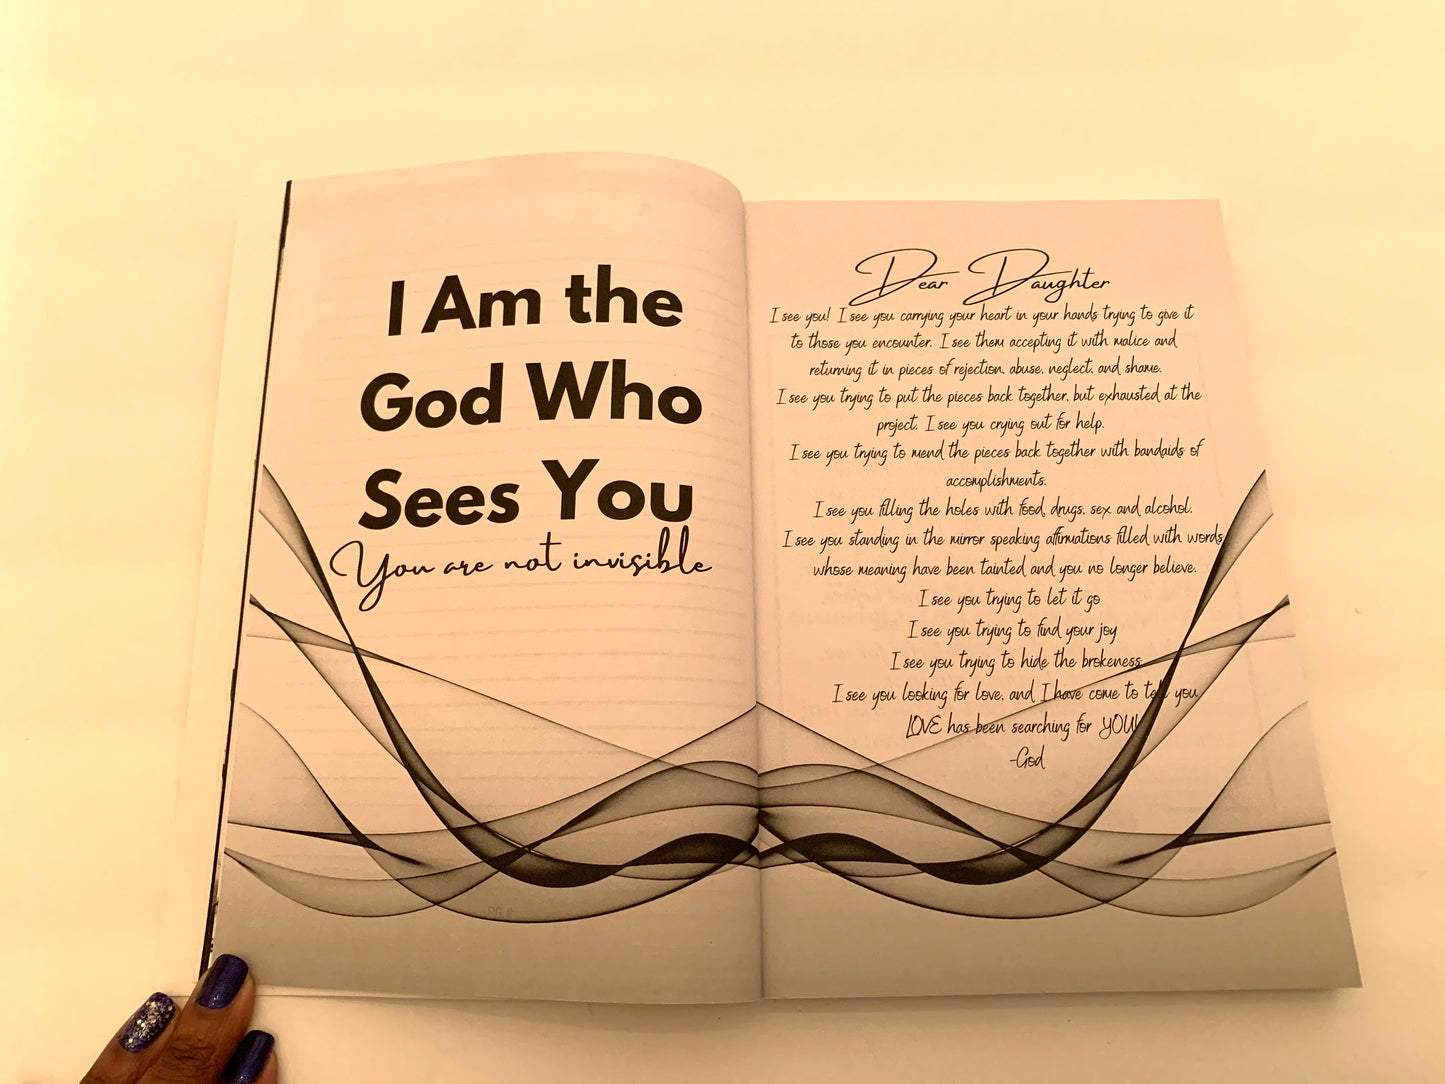 I Am the
God Who
Sees You
You are not invisible
PG #
Dear Daughter
I see you! I see you carrying your heart in your hands trying to give it
to those you encounter. I see them accepting it with malice and
returning it in pieces of rejection, abuse, neglect, and shame.
I see you trying to put the pieces back together, but exhausted at the
project. I see you crying out for help.
I see you trying to mend the pieces back together with bandaids of
accomplishments.
I see you filling the holes with food, drugs, sex and alcohol.
I see you standing in the mirror speaking affirmations filled with words
whose meaning have been tainted and you no longer believe.
I see you trying to let it go
I see you trying to find your joy
I see you trying to hide the brokeness
I see you looking for love, and I have come to tell you
LOVE has been searching for YOU!
-God